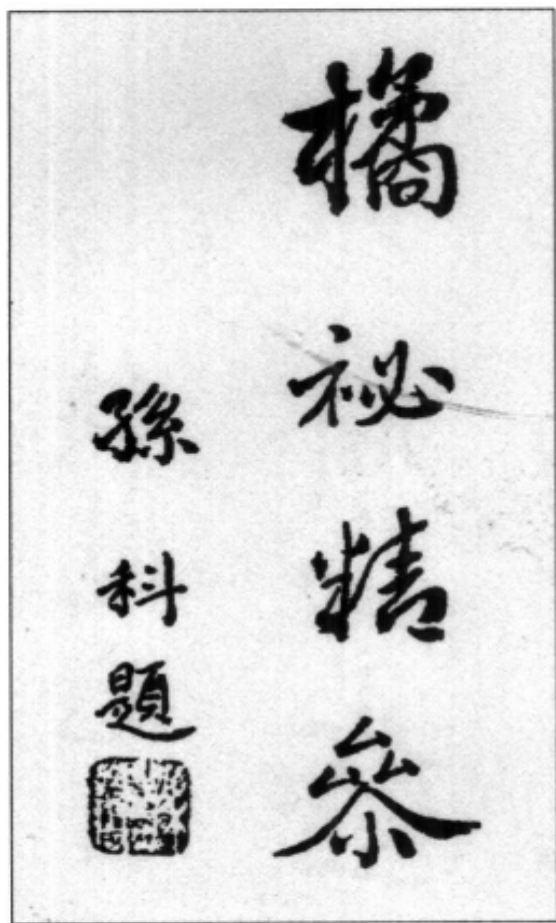 橘祕精參
孫科題